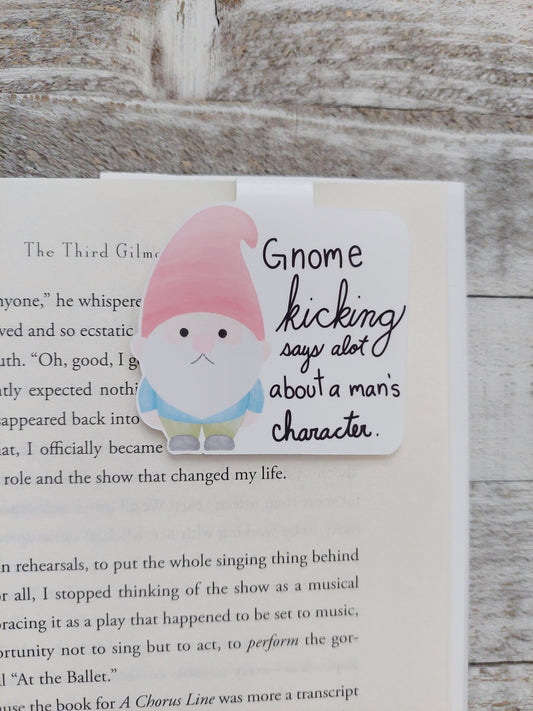 The Third Gilm
Gnome
kicking
says alot
about a man's
character.
nyone," he whispere
ved and so ecstatic
uth. "Oh, good, I g
tly expected nothi
sappeared back into
at, I officially became
role and the show that changed my life.
n rehearsals, to put the whole singing thing behind
r all, I stopped thinking of the show as a musical
racing it as a play that happened to be set to music,
ortunity not to sing but to act, to perform the gor-
l "At the Ballet."
use the book for A Chorus Line was more a transcript